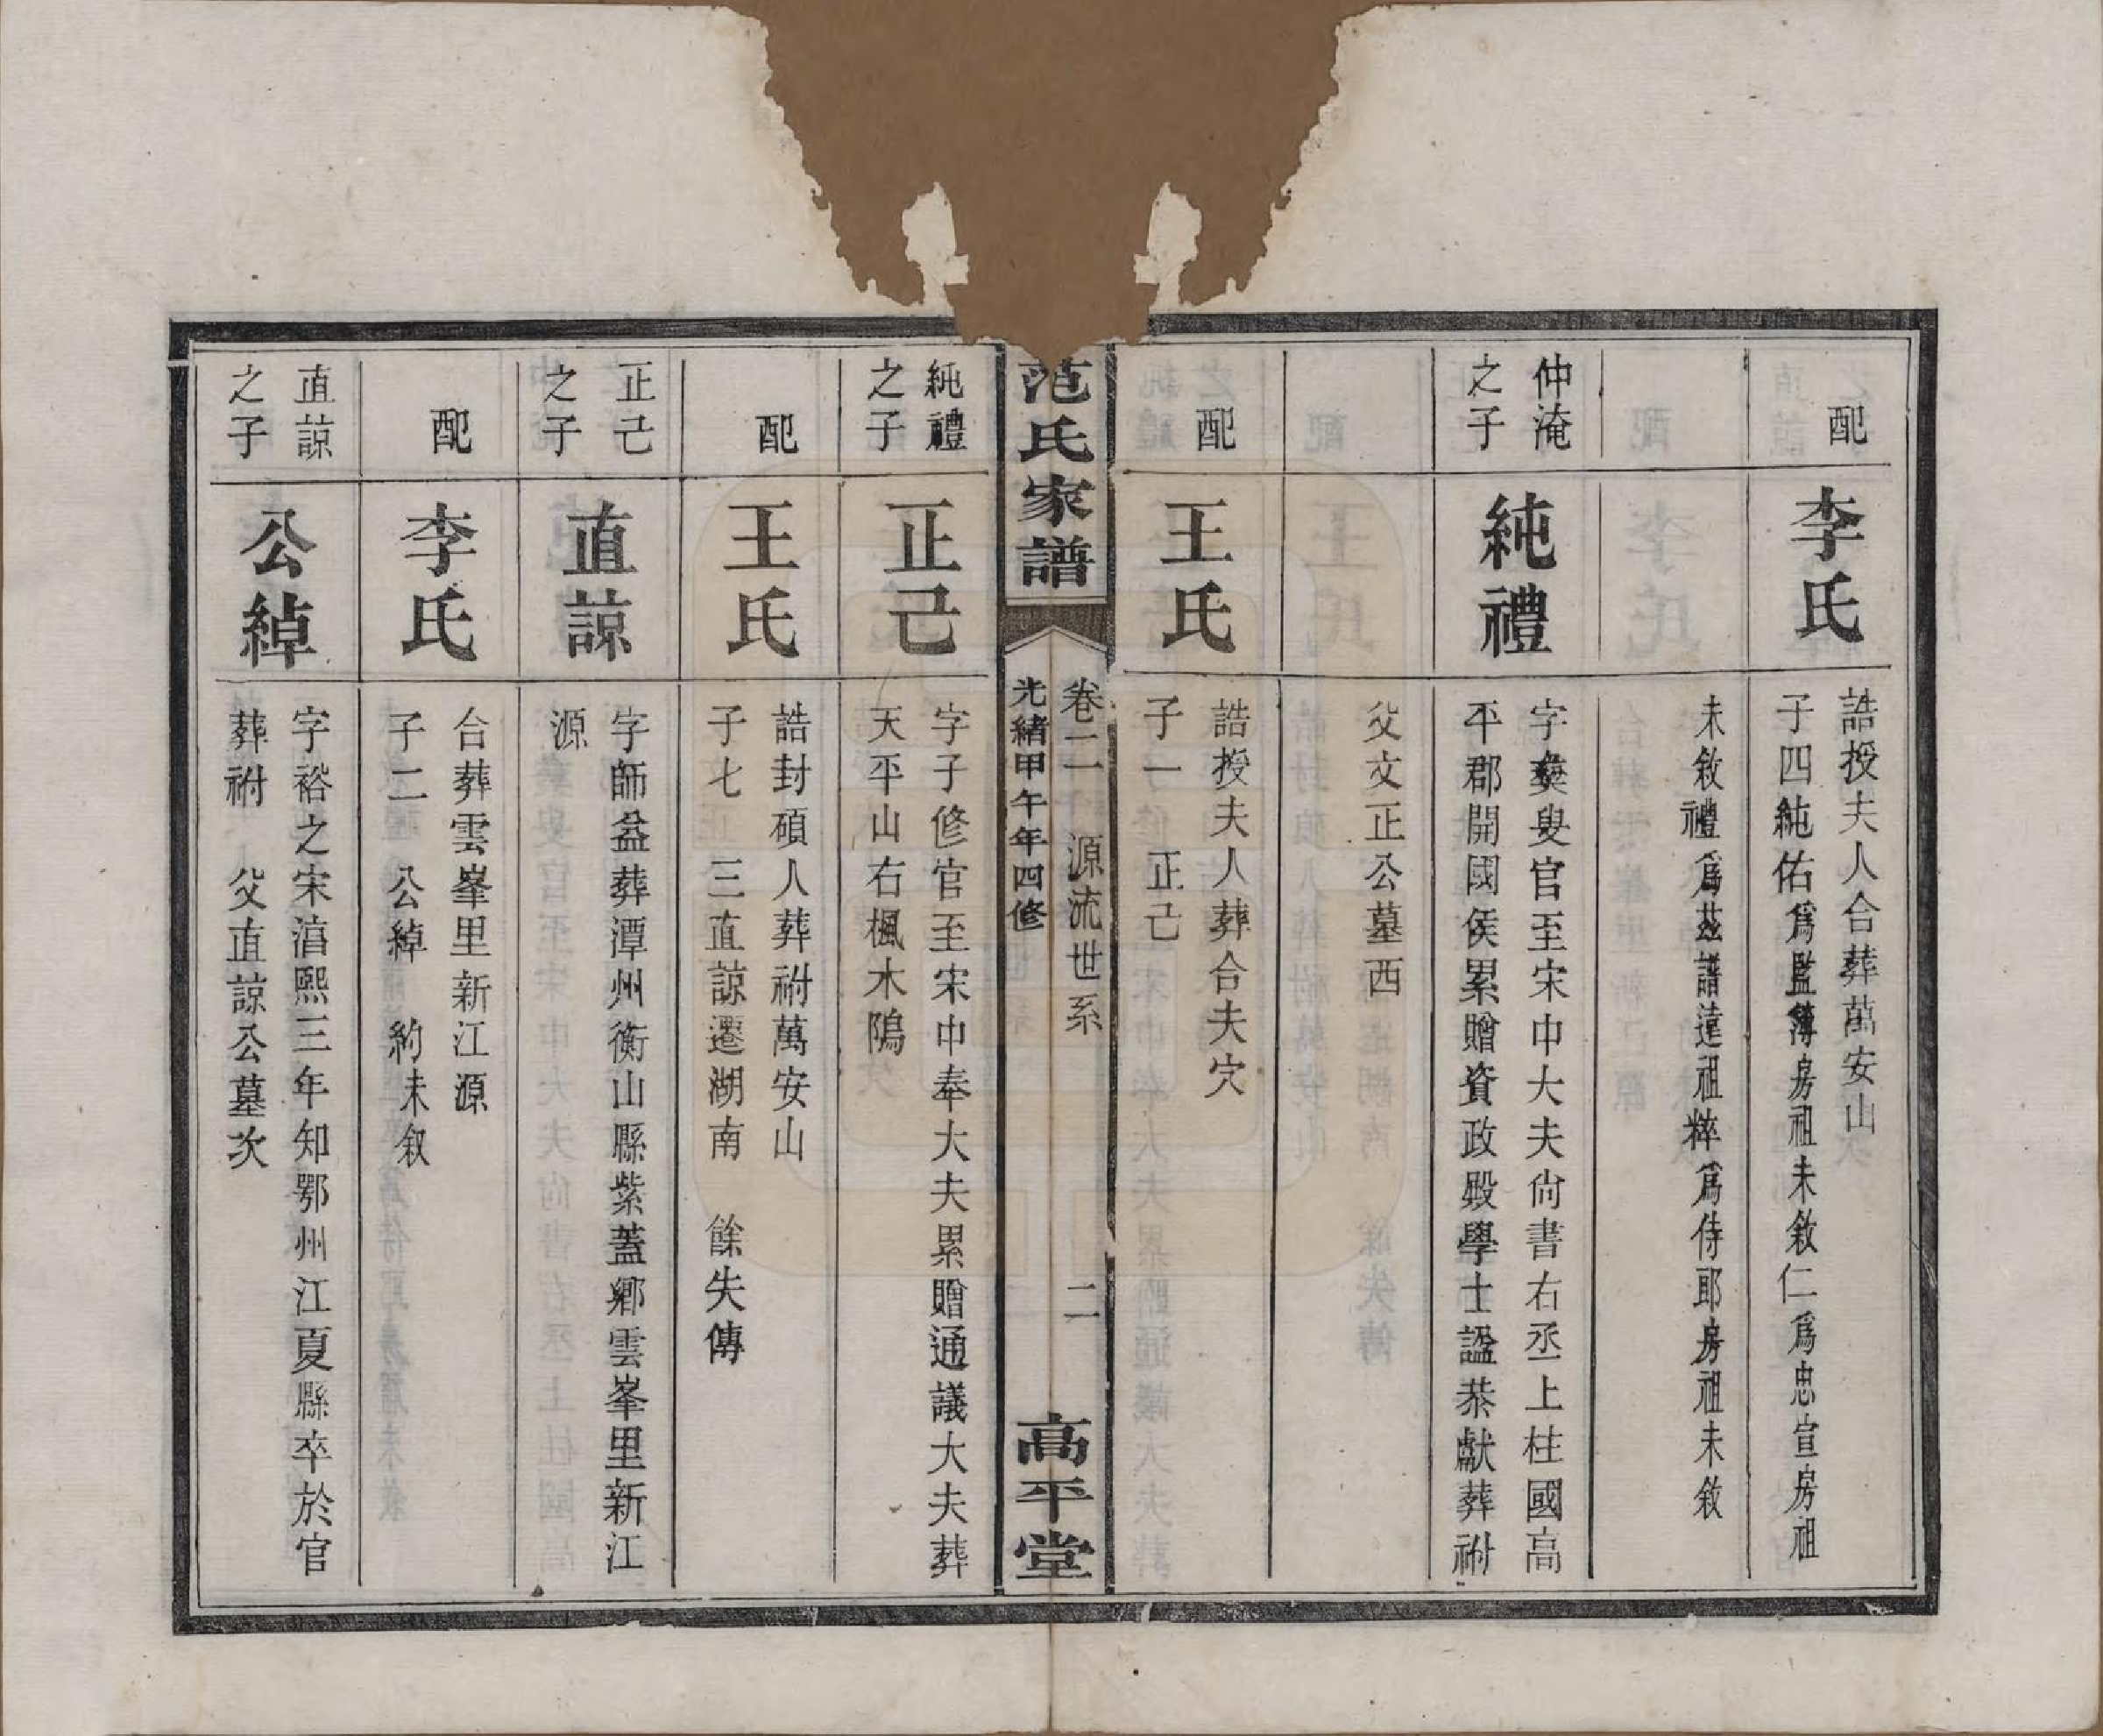 配
李氏
誥授夫人合葬萬安山
子四純佑爲監簿房祖未敘仁爲忠宣房祖
未敘禮爲茲譜遠祖粹爲侍郎房祖未敘
仲淹
之子
純禮
字彝叟官至宋中大夫尙書右丞上柱國高
平郡開國侯累贈資政殿學士諡恭獻葬祔
父文正公墓西
配
王氏
誥授夫人葬合夫穴
子一　正己
范氏家譜
卷二　源流世系　二
光緒甲午年四修
高平堂
純禮
之子
正己
字子修官至宋中奉大夫累贈通議大夫葬
天平山右楓木隖
配
王氏
誥封碩人葬祔萬安山
子七　三直諒遷湖南　餘失傳
正己
之子
直諒
字師益葬潭州衡山縣紫蓋鄉雲峯里新江
源
配
李氏
合葬雲峯里新江源
子二　公綽　約未叙
直諒
之子
公綽
字裕之宋淳熙三年知鄂州江夏縣卒於官
葬祔　父直諒公墓次